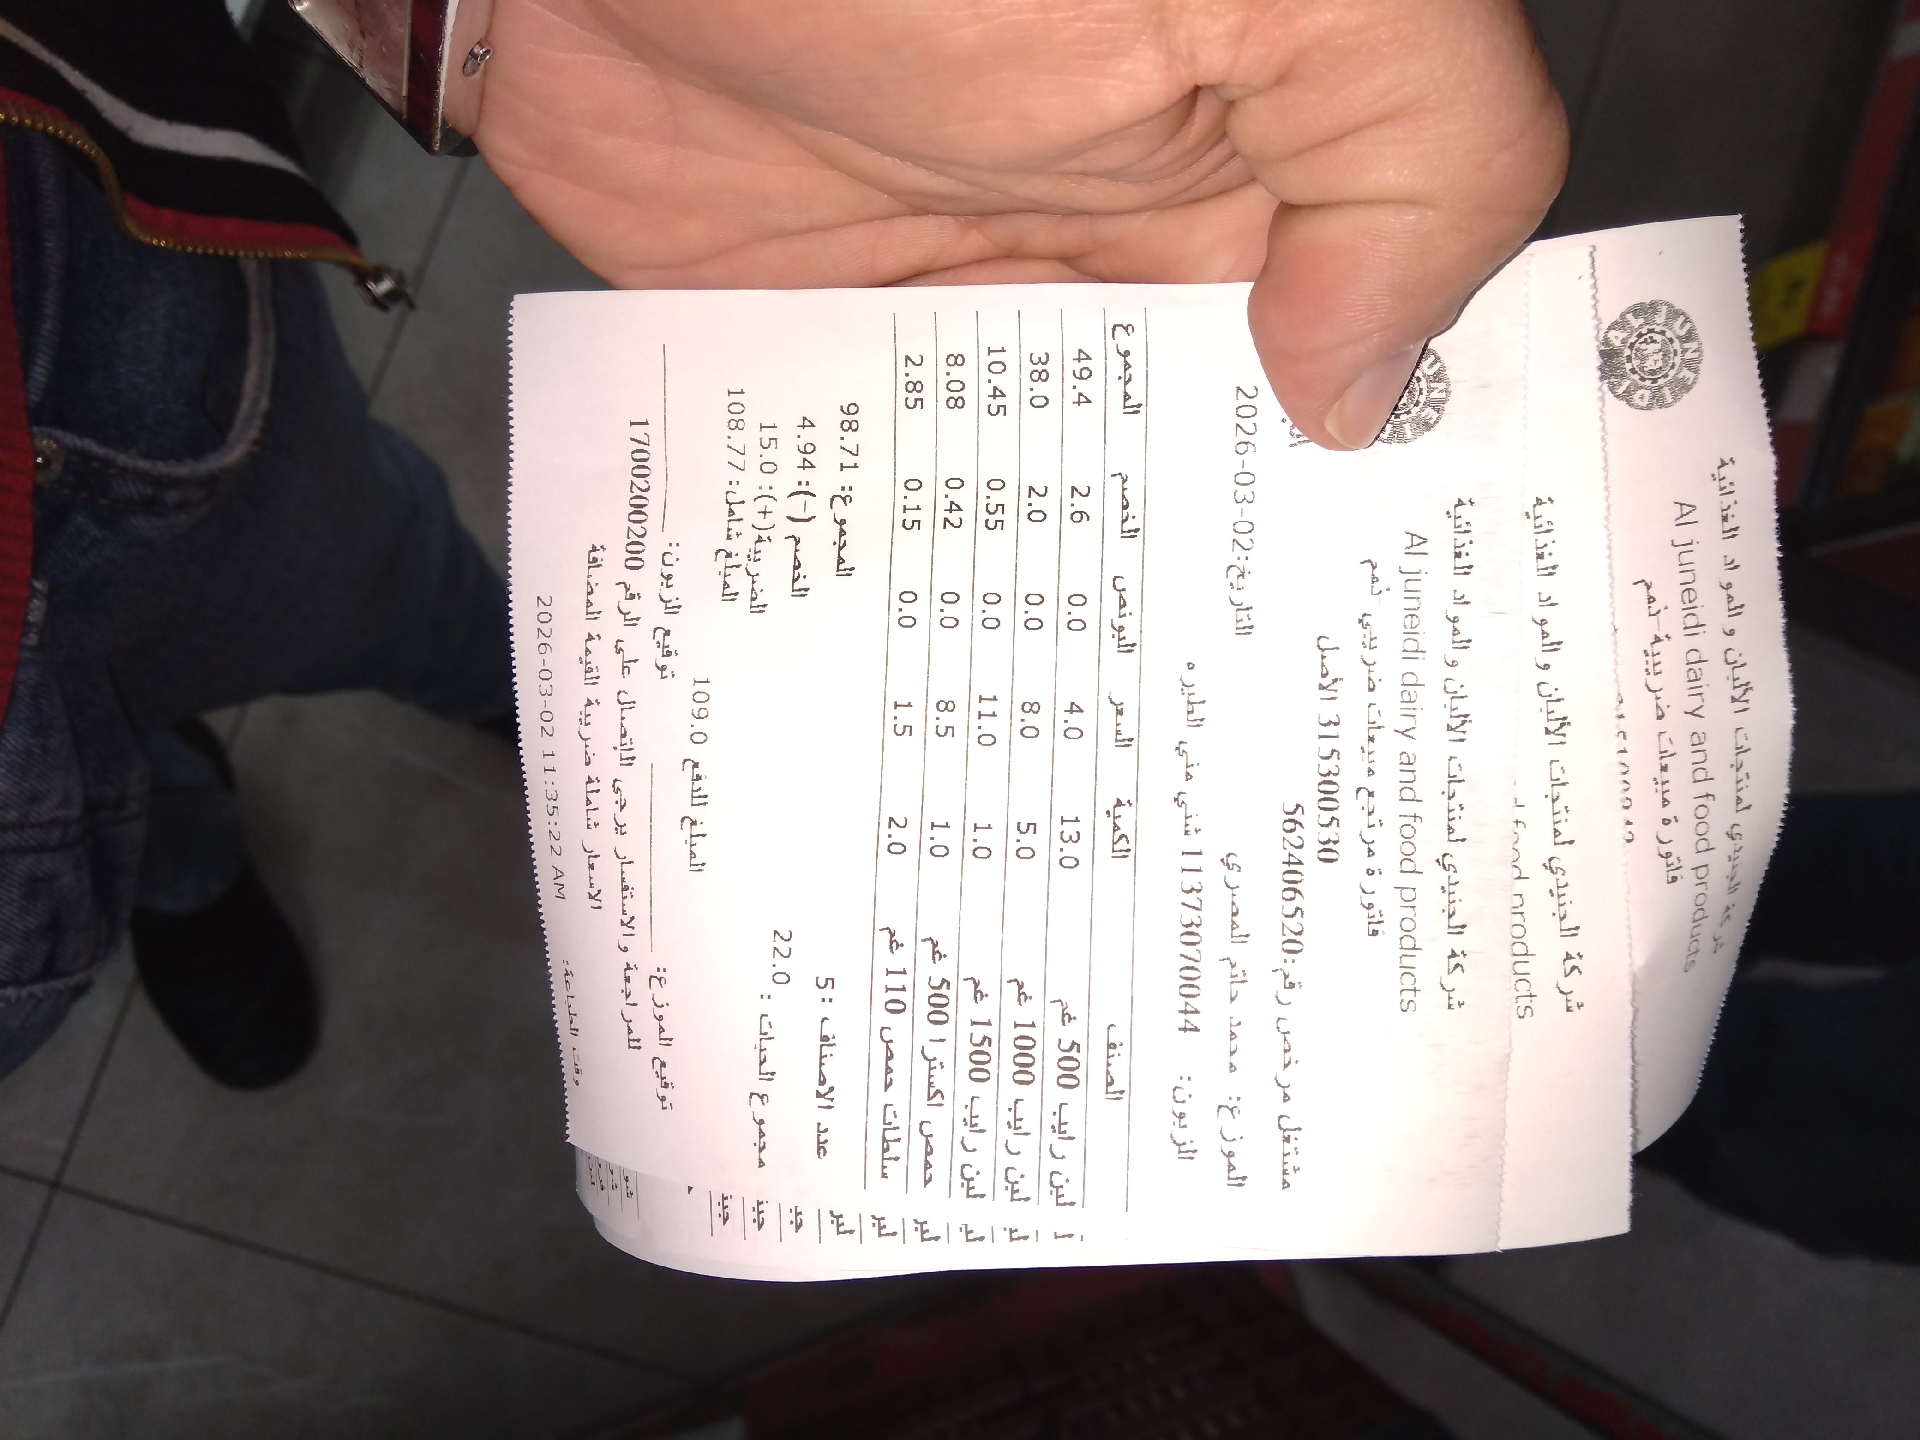 شركة الجنيدي لمنتجات الألبان والمواد الغذائية
Al juneidi dairy and food products
فاتورة مبيعات ضريبية ذمم
شركة الجنيدي لمنتجات الألبان والمواد الغذائية
food products
شركة الجنيدي لمنتجات الألبان والمواد الغذائية
Al juneidi dairy and food products
فاتورة مرتجع مبيعات ضريبي ذمم
315300530 الأصل
مشتغل مرخص رقم:562406520
الموزع: محمد حاتم المصري التاريخ:2026-03-02
الزبون: 11373070044 شني مني الطيره
الصنف الكمية السعر البونص الخصم المجموع
لبن رايب 500 غم 13.0 4.0 0.0 2.6 49.4
لبن رايب 1000 غم 5.0 8.0 0.0 2.0 38.0
لبن رايب 1500 غم 1.0 11.0 0.0 0.55 10.45
حمص اكسترا 500 غم 1.0 8.5 0.0 0.42 8.08
سلطات حمص 110 غم 2.0 1.5 0.0 0.15 2.85
عدد الاصناف : 5 المجموع: 98.71
الخصم (-): 4.94
مجموع الحبات : 22.0 الضريبة(+): 15.0
المبلغ شامل: 108.77
المبلغ للدفع 109.0
توقيع الموزع: توقيع الزبون:
للمراجعة والاستفسار يرجى الاتصال على الرقم 1700200200
الاسعار شاملة ضريبة القيمة المضافة
وقت الطباعة: 2026-03-02 11:35:22 AM